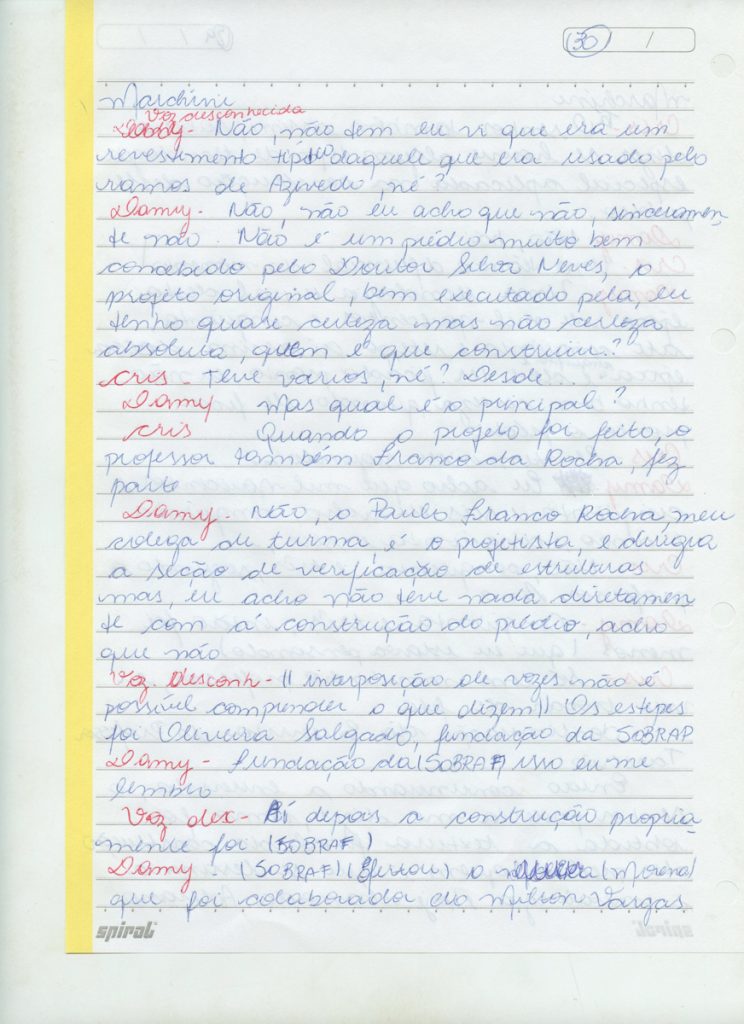 30 /
Marchini
Voz desconhecida
Damy - Não, não tem eu vi que era um
revestimento tipo daquele que era usado pelo
ramos de Azevedo, né?
Damy - Não, não eu acho que não, sinceramen-
te não. Não é um prédio muito bem
concebido pelo Doutor Silva Neves, o
projeto original, bem executado pela, eu
tenho quase certeza mas não certeza
absoluta, quem é que construiu..?
Cris - Teve varios, né? Desde..
Damy Mas qual é o principal?
Cris Quando o projeto foi feito, o
professor também Franco da Rocha, fez
parte
Damy - Não, o Paulo Franco Rocha, meu
colega de turma, é o projetista, e dirigia
a seção de verificação de estruturas
mas, eu acho não teve nada diretamen-
te com a construção do prédio, acho
que não
Voz. desconh - || interposição de vozes não é
possível comprender o que dizem|| Os estepes
foi Oliveira Salgado, fundação da SOBRAF
Damy - fundação da (SOBRAF) isso eu me
lembro
Voz des - Aí depois a construção propria-
mente foi (SOBRAF)
Damy - (SOBRAF) o (Moreno)
que foi colaborada do Milton Vargas
spiral